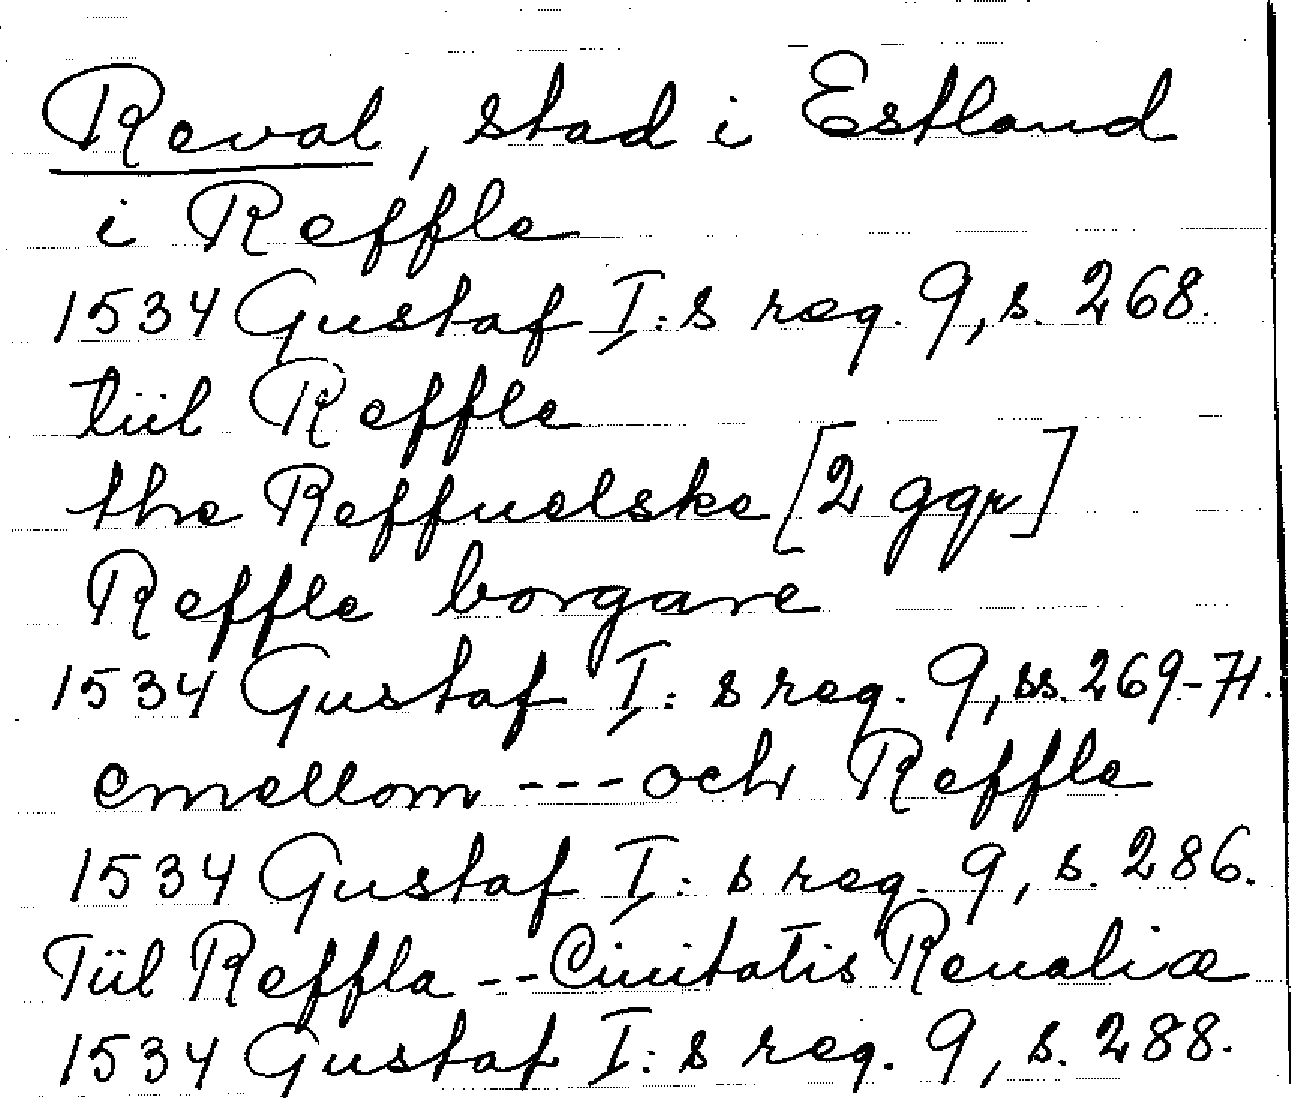 Reval, stad i Estland
i Reffle
1534 Gustaf I:s reg. 9, s. 268.
tiil Reffle
the Reffuelske [2 ggr]
Reffle borgare
1534 Gustaf I:s reg. 9, ss. 269-71.
emellom --- och Reffle
1534 Gustaf I:s reg. 9, s. 286.
Tiil Reffla -- Ciuitatis Reualiæ
1534 Gustaf I:s reg. 9, s. 288.